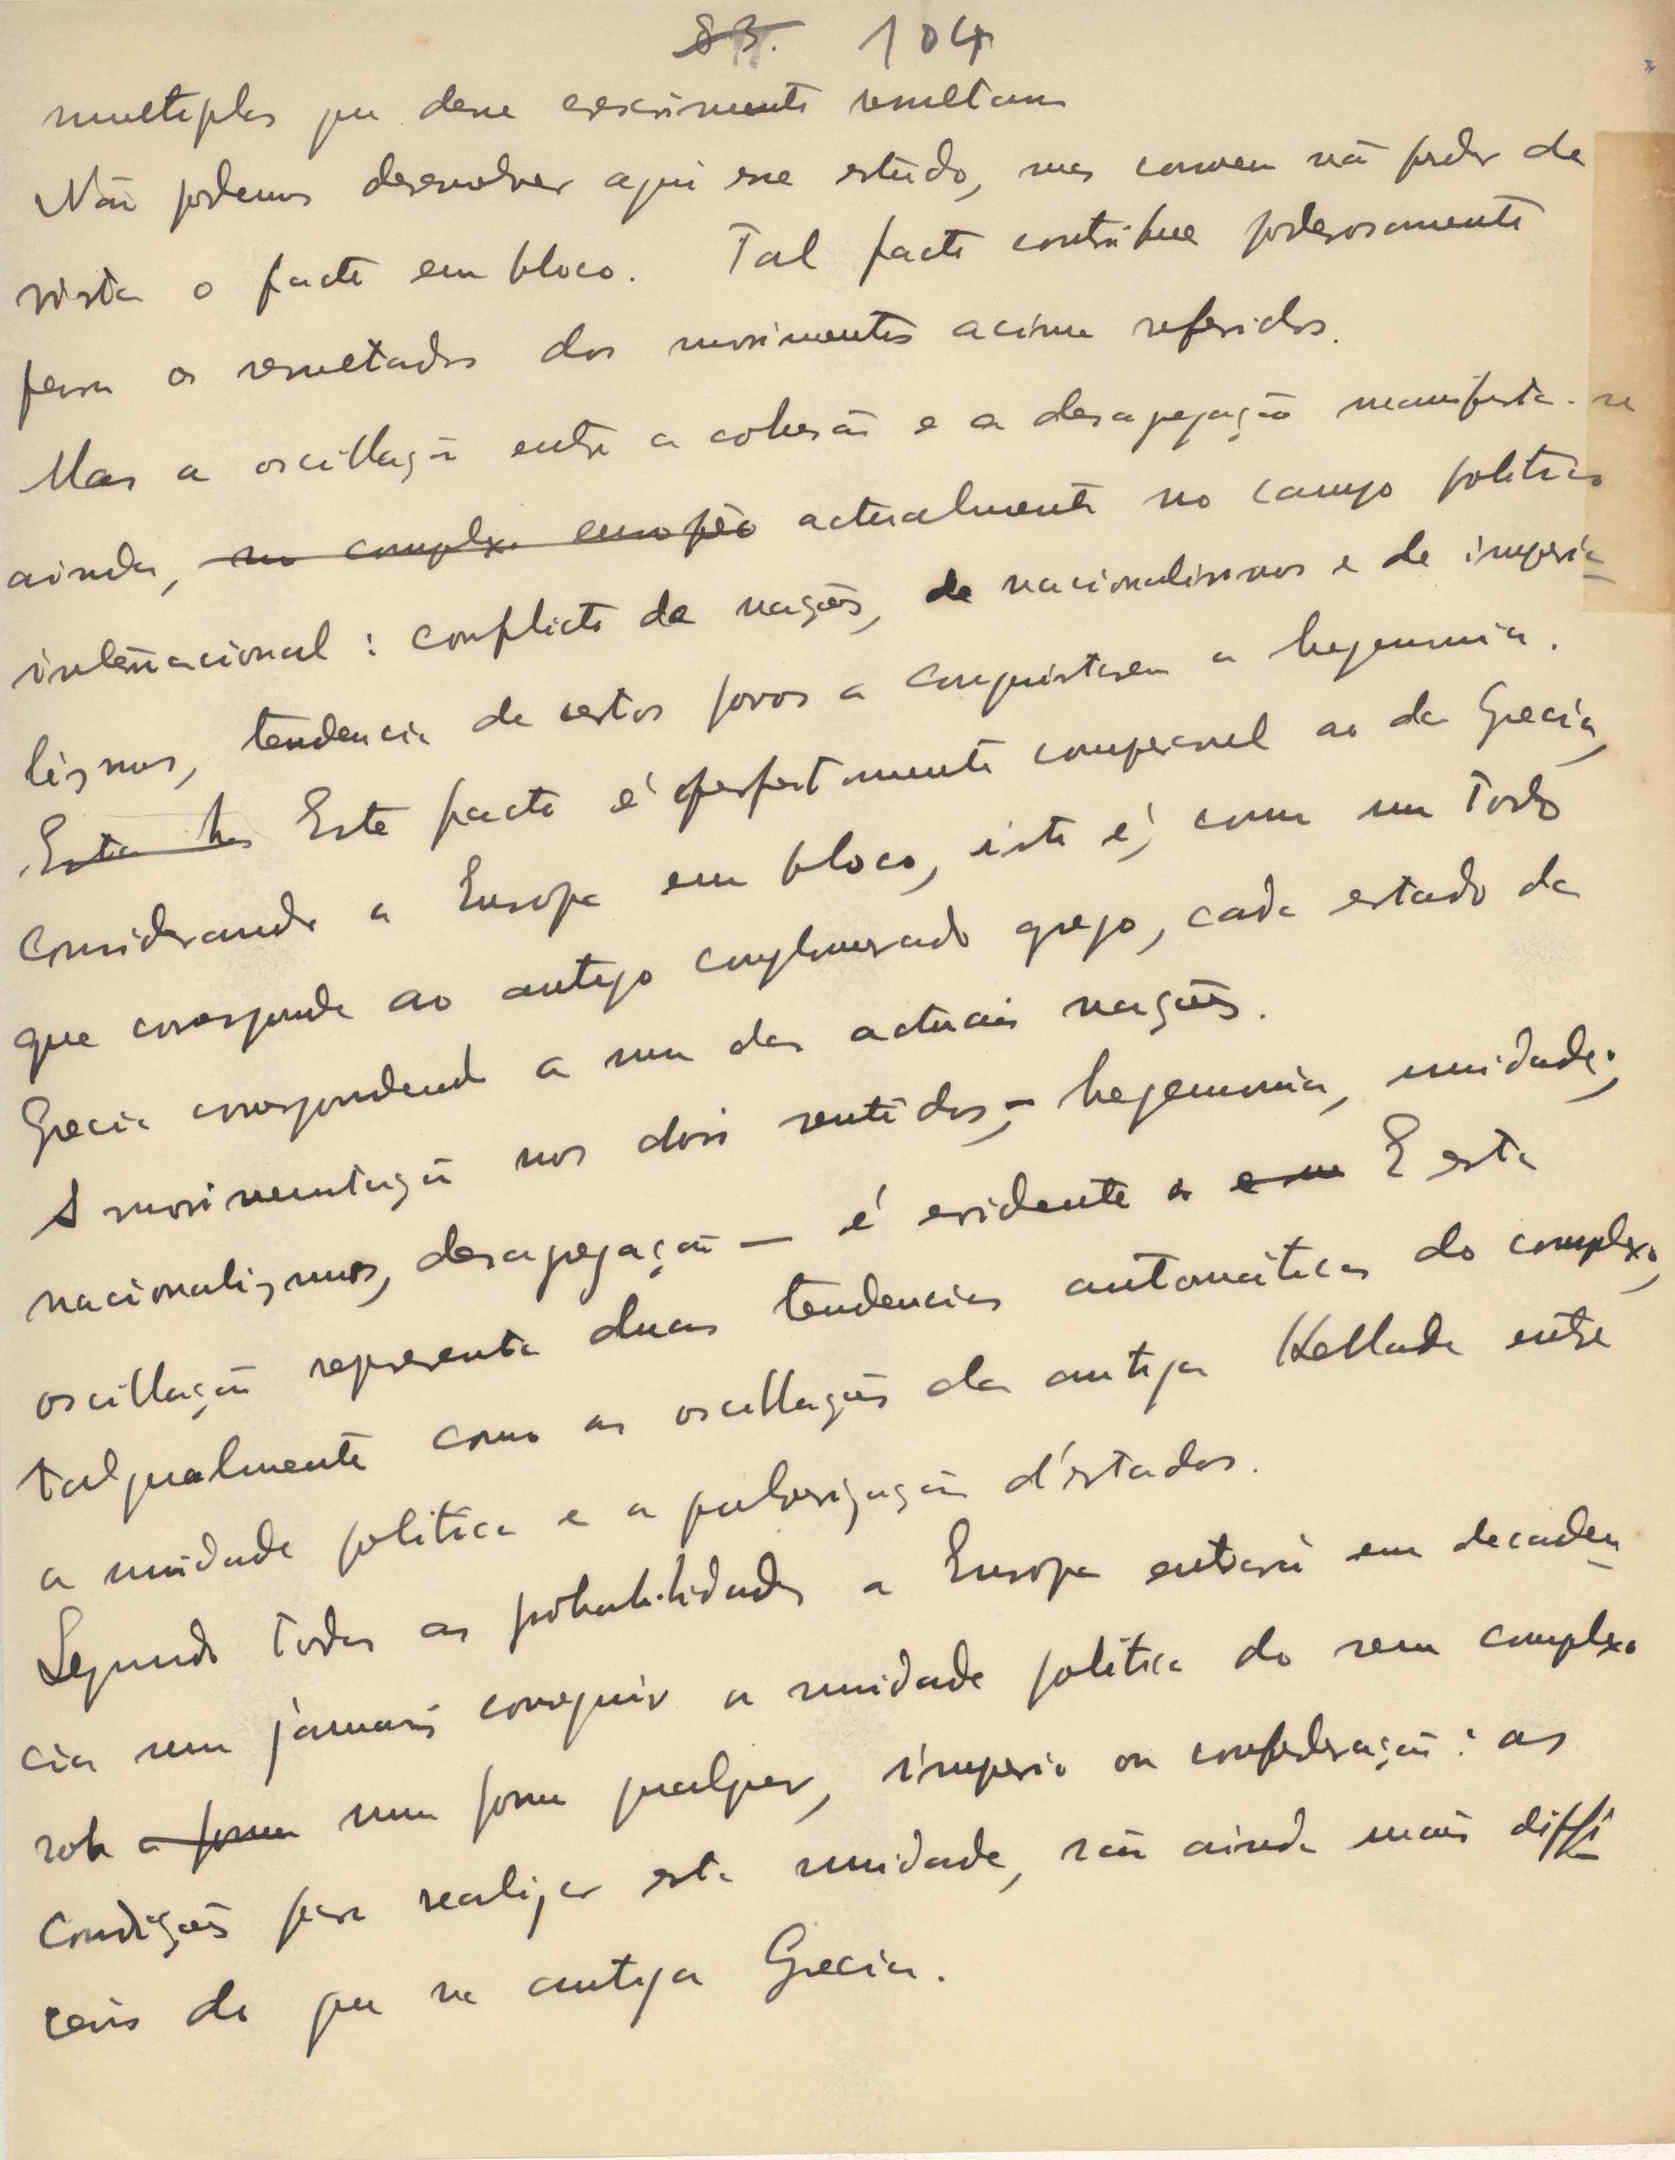 83. 104
multiplas que desse crescimento resultam
Não podemos desenvolver aqui esse estudo, mas convem não perder de
vista o facto em bloco. Tal facto contribue poderosamente
para os resultados dos movimentos acima referidos.
Mas a oscillação entre a cohesão e a desagregação manifesta-se
ainda, no complexo europêo actualmente no campo politico
internacional: conflicto de nações, de nacionalismos e de imperia-
lismos, tendencia de certos povos a conquistarem a hegemonia.
Esta he Este facto é perfeitamente comparavel ao da Grecia,
considerando a Europa em bloco, isto é, como um Todo
que corresponde ao antigo conglomerado grego, cada estado da
Grecia correspondendo a uma das actuais nações.
A movimentação nos dois sentidos, - hegemonia, unidade;
nacionalismos, desagregação — é evidente e na E esta
oscillação representa duas tendencias automáticas do complexo,
talqualmente como as oscillações da antiga Hellade entre
a unidade politica e a pulverização d'estados.
Segundo todas as probabilidades a Europa entrará em decaden-
cia sem jamais conseguir a unidade politica do seu complexo
sob a forma uma forma qualquer, imperio ou confederação: as
condições para realizar esta unidade, são ainda mais diffi-
ceis do que na antiga Grecia.